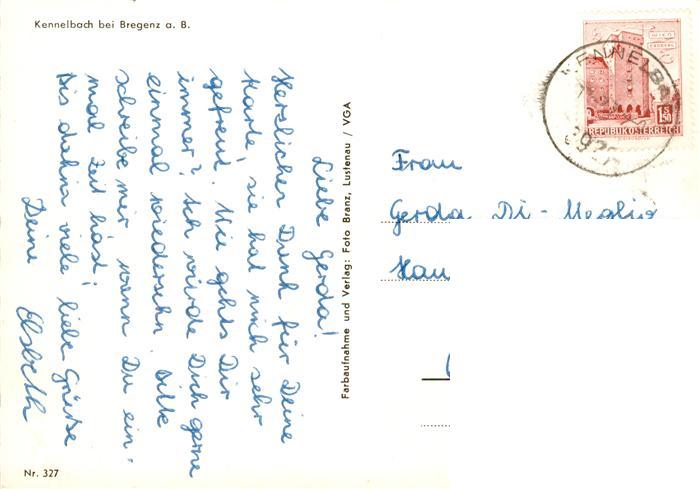 Kennelbach bei Bregenz a. B.
Liebe Gerda!
Herzlichen Dank für Deine
Karte, sie hat mich sehr
gefreut. Wie gehts Dir
immer? Ich würde Dich gerne
einmal wiedersehn. Bitte
schreibe mir wann Du ein-
mal Zeit hast!
Bis dahin viele liebe Grüße
Deine
Elsbeth
Nr. 327
Farbaufnahme und Verlag: Foto Branz, Lustenau / VGA
REPUBLIK ÖSTERREICH
S 1.50
KENNELBA
Frau
Gerda Di-